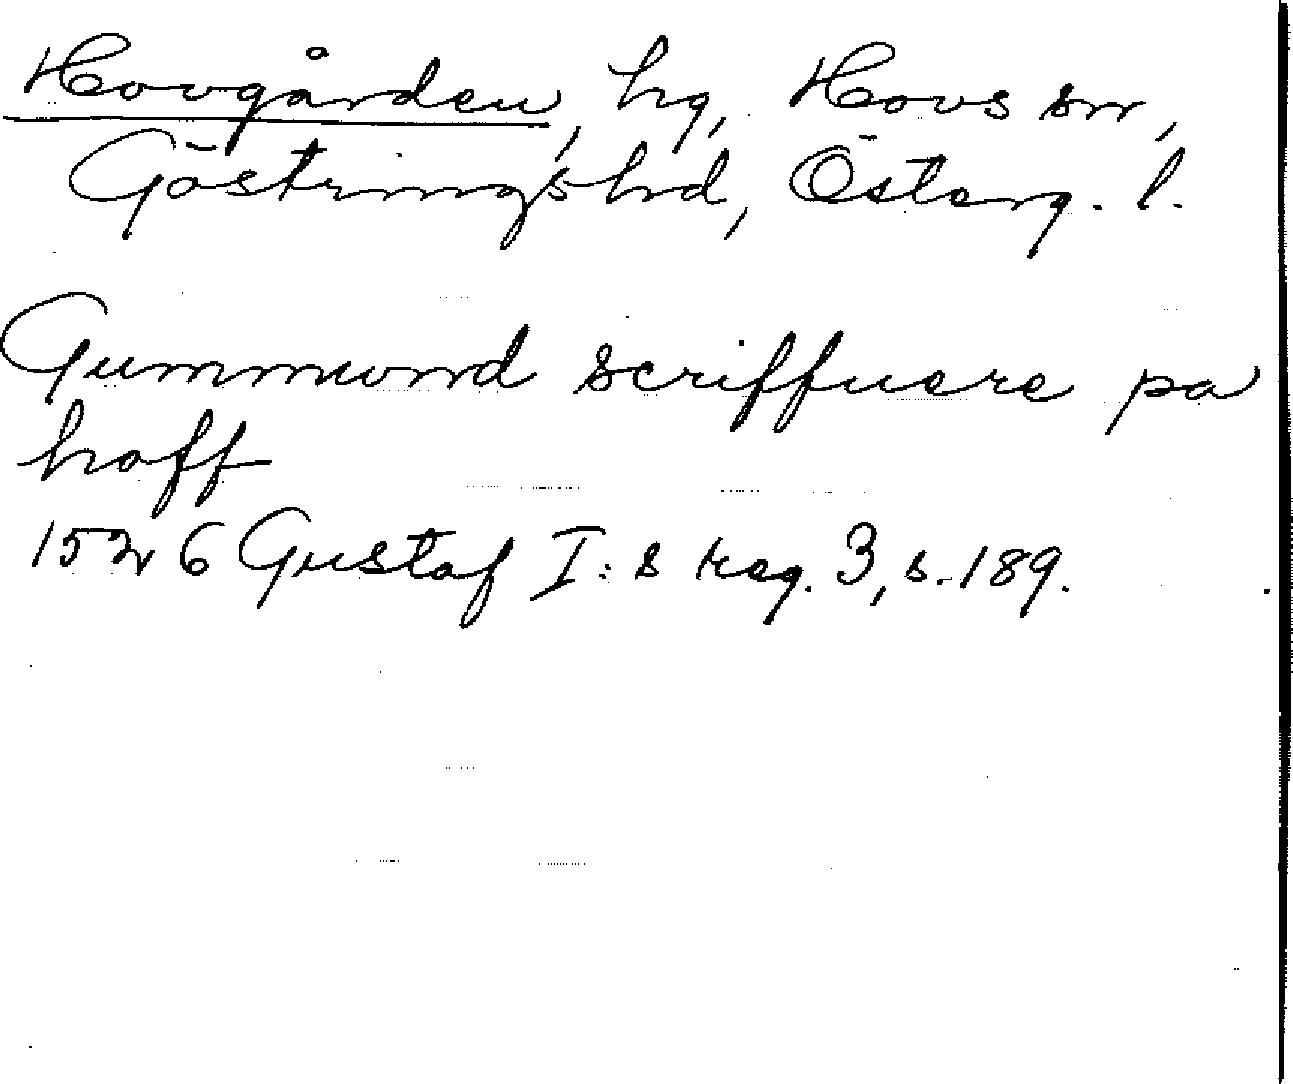 Hovgården, hg, Hovs sn,
Göstrings hd, Österg. l.
Gummund scriffuere pa
hoff
1526 Gustaf I:s reg. 3, s. 189.